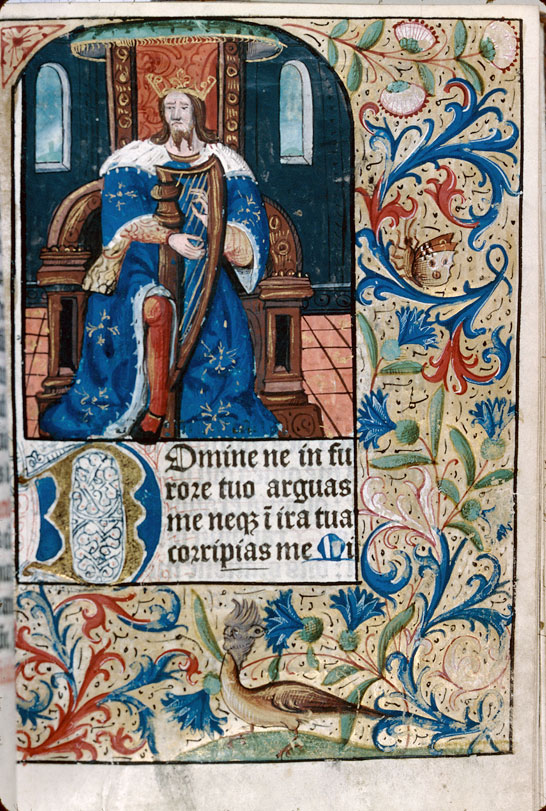 Domine ne in fu
rore tuo arguas
me neqꝫ ī ira tua
corripias me Mi